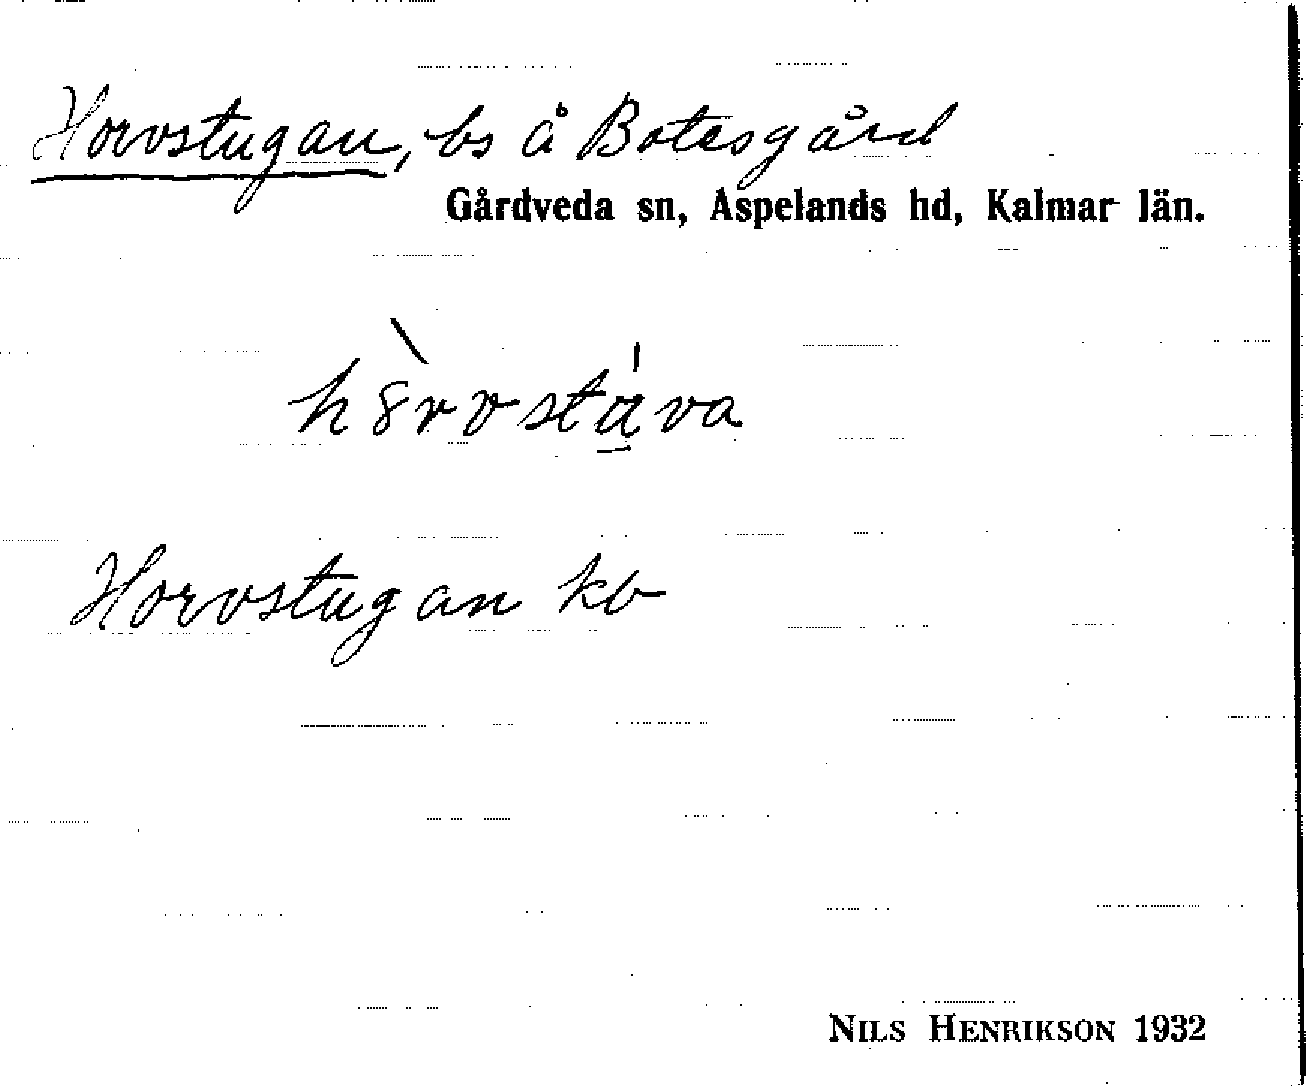 Horvstugan, bs å Botesgård
Gårdveda sn, Aspelands hd, Kalmar län.
Horvstugan kb
NILS HENRIKSON 1932